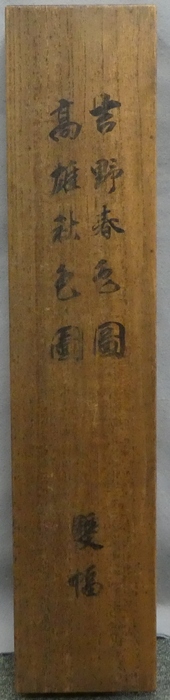 吉野春色圖
高雄秋色圖
雙幅